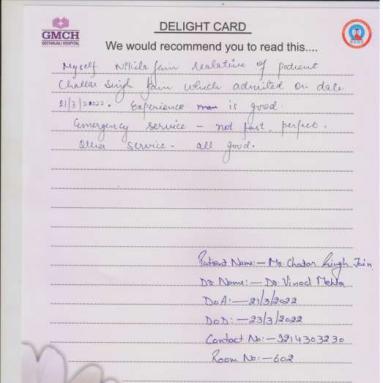 GMCH
GEETANJALI HOSPITAL
DELIGHT CARD
We would recommend you to read this....
Myself Nikhil Jain realative of patient
Chatter Singh Jain which admited on date
21/3/2022. Experience is good
Emergency service - not fast, perfect.
Other service - all good.
Patient Name:- Mr. Chatar Singh Jain
Dr Name:- Dr. Vinod Mehta
DOA:- 21/3/2022
DOD:- 23/3/2022
Contact No:- 3214303230
Room No:- 602